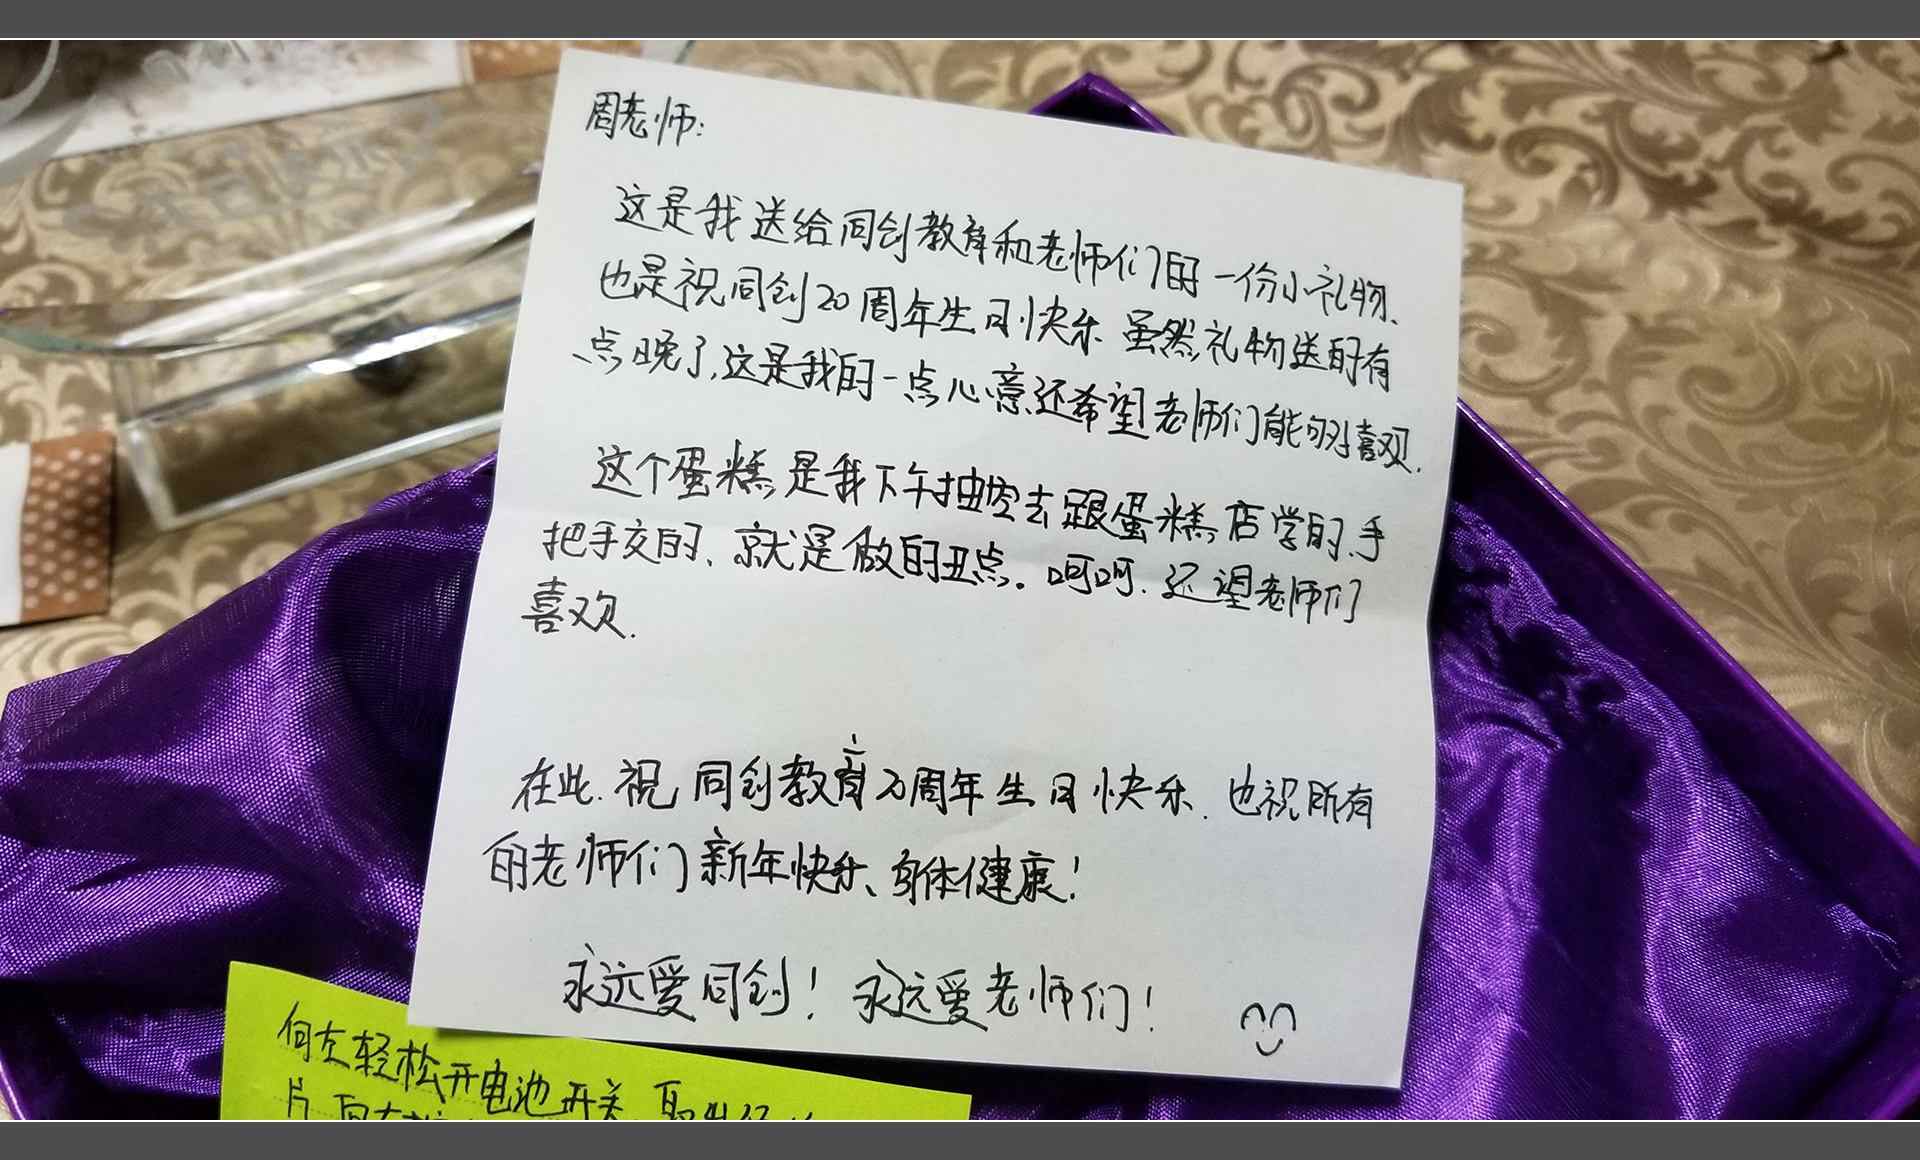 周老师:
这是我送给同创教育和老师们的一份小礼物、
也是祝同创20周年生日快乐.虽然礼物送的有
点晚了,这是我的一点心意还希望老师们能够喜欢.
这个蛋糕是我下午抽空去跟蛋糕店学的、手
把手交的、就是做的丑点。呵呵.还望老师们
喜欢.
在此.祝同创教育20周年生日快乐.也祝所有
的老师们新年快乐、身体健康!
永远爱同创!永远爱老师们!
向左轻松开电池开关
片